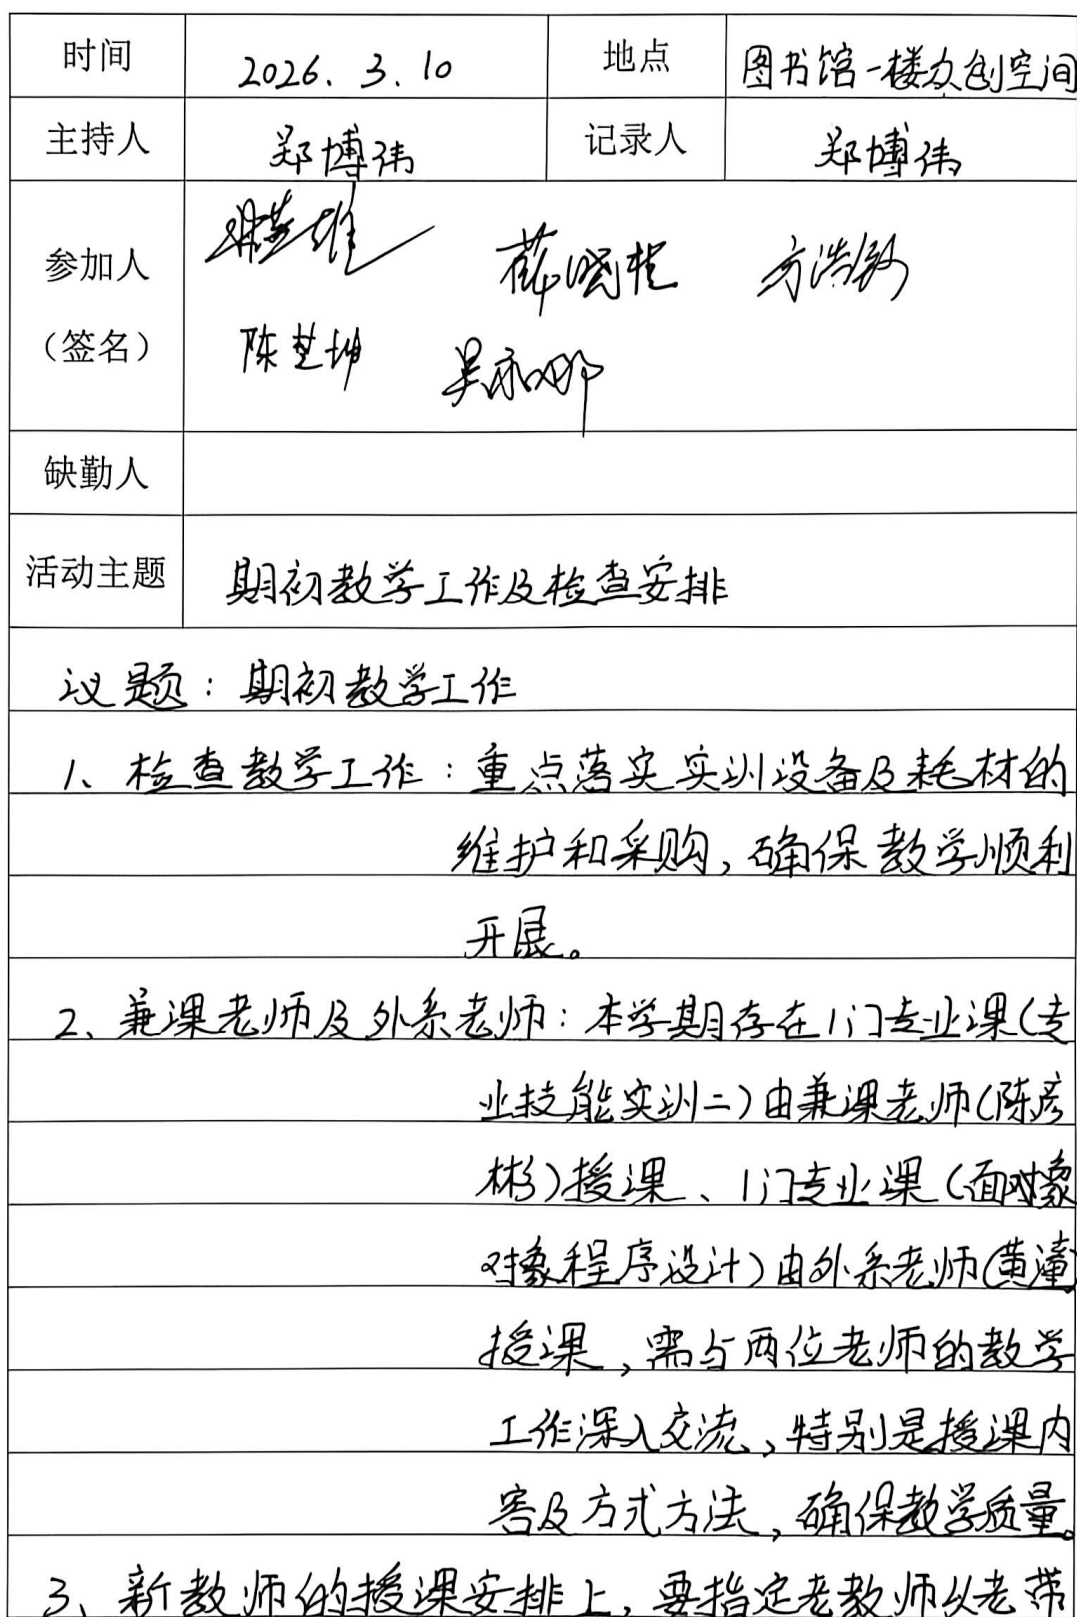 时间 2026.3.10 地点 图书馆一楼众创空间
主持人 郑博伟 记录人 郑博伟
参加人
(签名)
薛晓桂 方浩钦
陈 坤 吴 娜
缺勤人
活动主题 期初教学工作及检查安排
议题：期初教学工作
1、检查教学工作：重点落实实训设备及耗材的
维护和采购，确保教学顺利
开展。
2、兼课老师及外系老师：本学期存在1门专业课(专
业技能实训二)由兼课老师(陈彦
彬)授课、1门专业课(面对象
对象程序设计)由外系老师(黄潼)
授课，需与两位老师的教学
工作深入交流，特别是授课内
容及方式方法，确保教学质量。
3、新教师的授课安排上，要指定老教师以老带